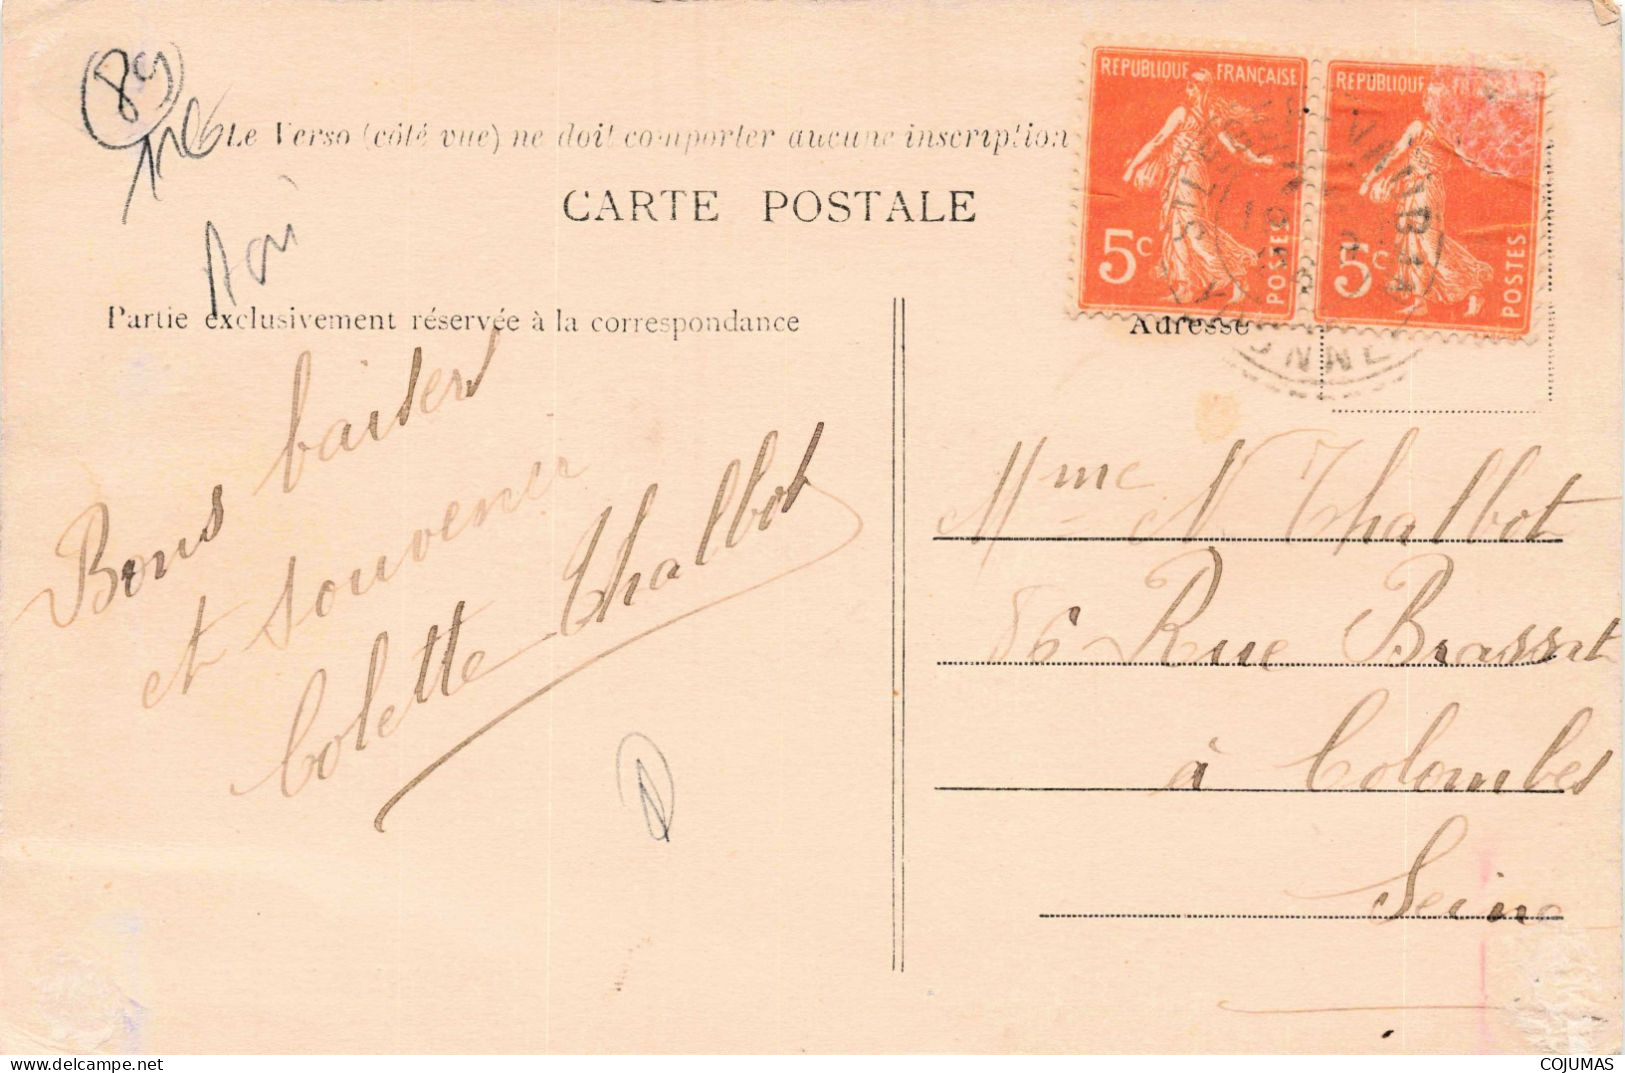 89
Le Verso (côté vue) ne doit comporter aucune inscription
CARTE POSTALE
REPUBLIQUE FRANÇAISE
5c
POSTES
REPUBLIQUE
5c
POSTES
Partie exclusivement réservée à la correspondance
Adresse
Bons baisers
et souvenir
Colette Chalbot
Mme N Chalbot
86 Rue Brassat
à Colombes
Seine
COJUMAS